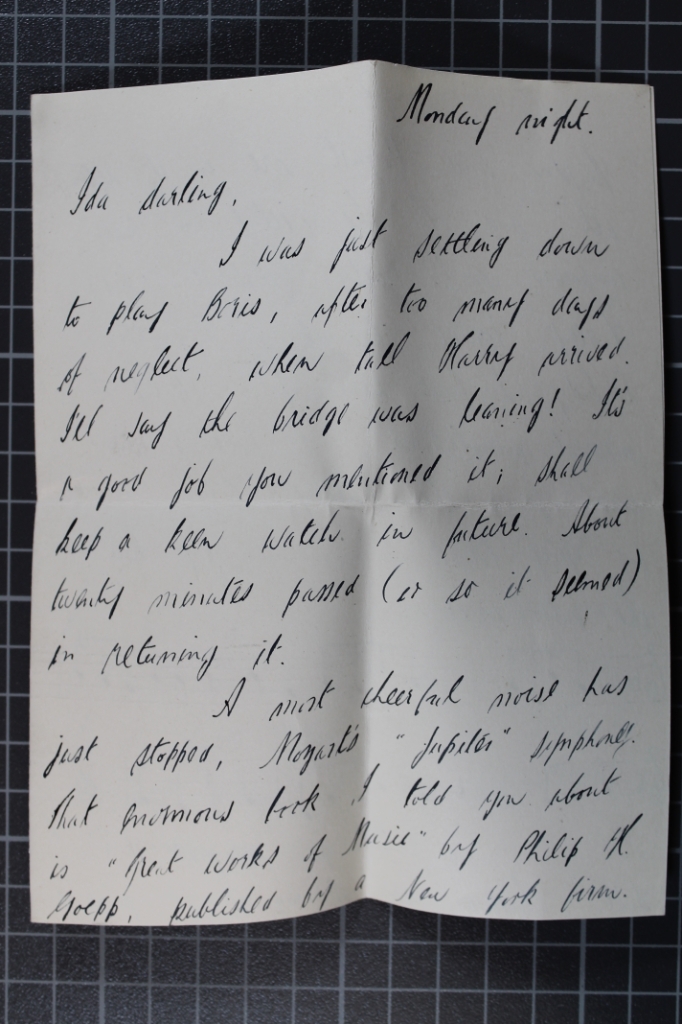 Monday night.
Ida darling,
I was just settling down
to play Boris, after too many days
of neglect, when tall Harry arrived.
I'll say the bridge was leaning! It's
a good job you mentioned it; shall
keep a keen watch in future. About
twenty minutes passed (or so it seemed)
in returning it.
A most cheerful noise has
just stopped, Mozart's "Jupiter" symphony.
That enormous book I told you about
is "Great Works of Music" by Philip H.
Goepp, published by a New York firm.